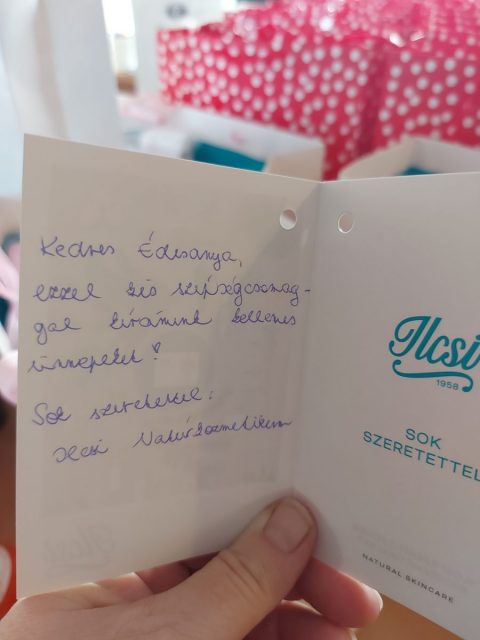 Kedves Édesanya,
ezzel kis szépségcsomag-
gal kívánunk kellemes
ünnepeket!
Sok szeretettel:
Ilcsi Natúrkozmetikum
Ilcsi
1958
SOK
SZERETETTEL
NATURAL SKINCARE